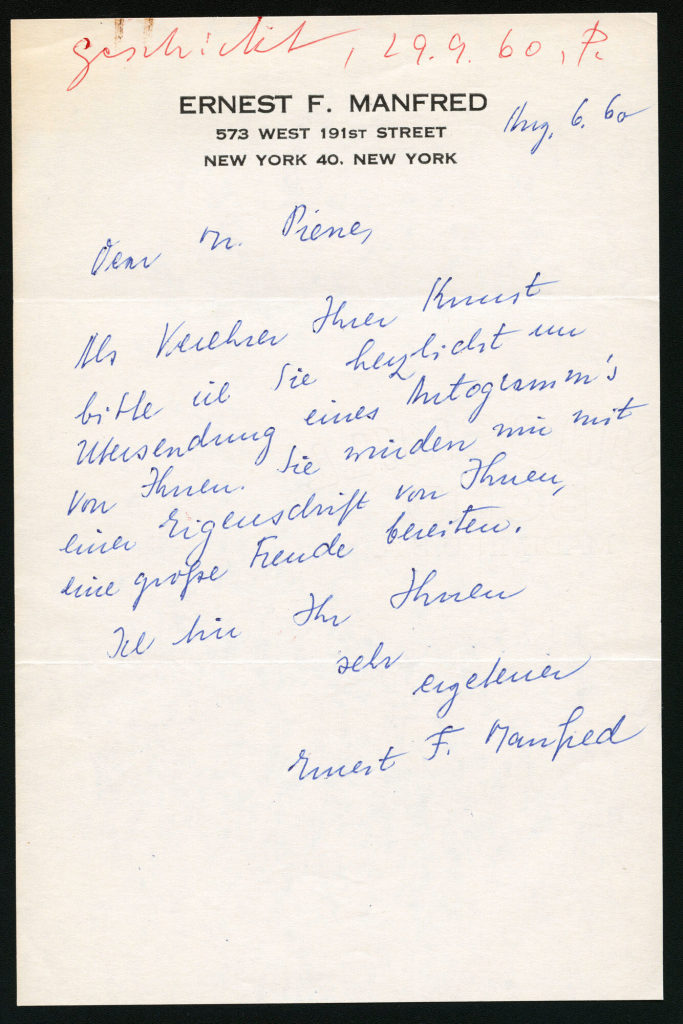 geschickt, 29.9.60, P.
ERNEST F. MANFRED
573 WEST 191ST STREET
NEW YORK 40, NEW YORK
Aug. 6. 60
Dear Mr. Piene,
Als Verehrer Ihrer Kunst
bitte ich Sie herzlichst um
Übersendung eines Autogramm's
von Ihnen. Sie würden mir mit
einer Eigenschrift von Ihnen,
eine große Freude bereiten.
Ich bin Ihr Ihnen
sehr
ergebener
Ernest F. Manfred